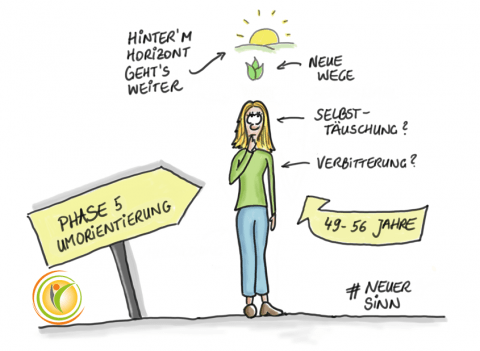 HINTER'M
HORIZONT
GEHT'S
WEITER
NEUE
WEGE
SELBST-
TÄUSCHUNG?
VERBITTERUNG?
PHASE 5
UMORIENTIERUNG
49-56 JAHRE
# NEUER
SINN